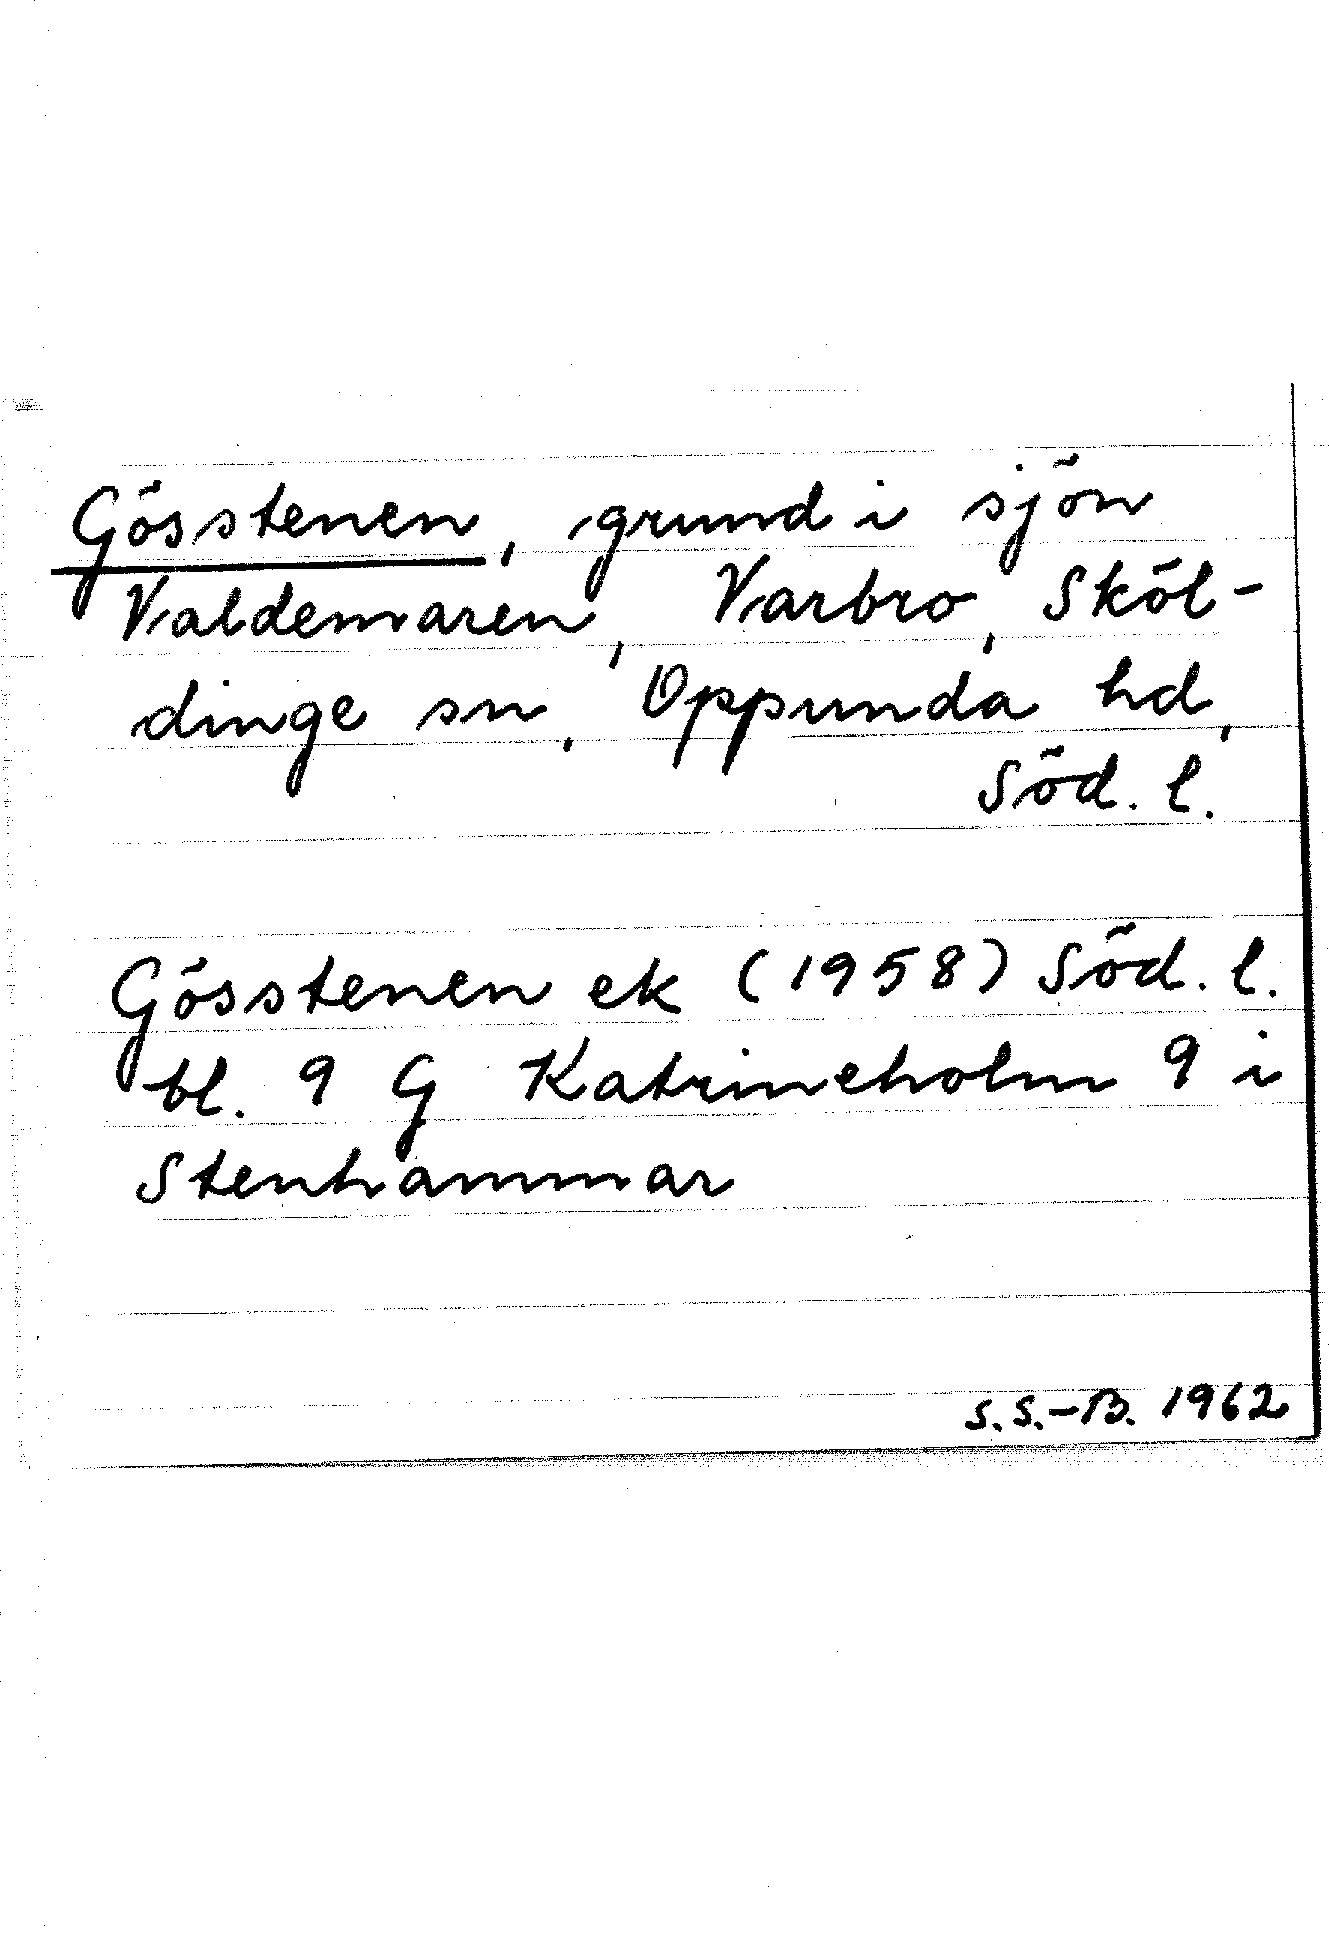 Gösstenen, grund i sjön
Valdemaren, Varbro, Sköl-
dinge sn, Oppunda hd,
Söd. l.
Gösstenen ek (1958) Söd. l.
bl. 9 G Katrineholm 9 i
Stenhammar
S.S.-B. 1962